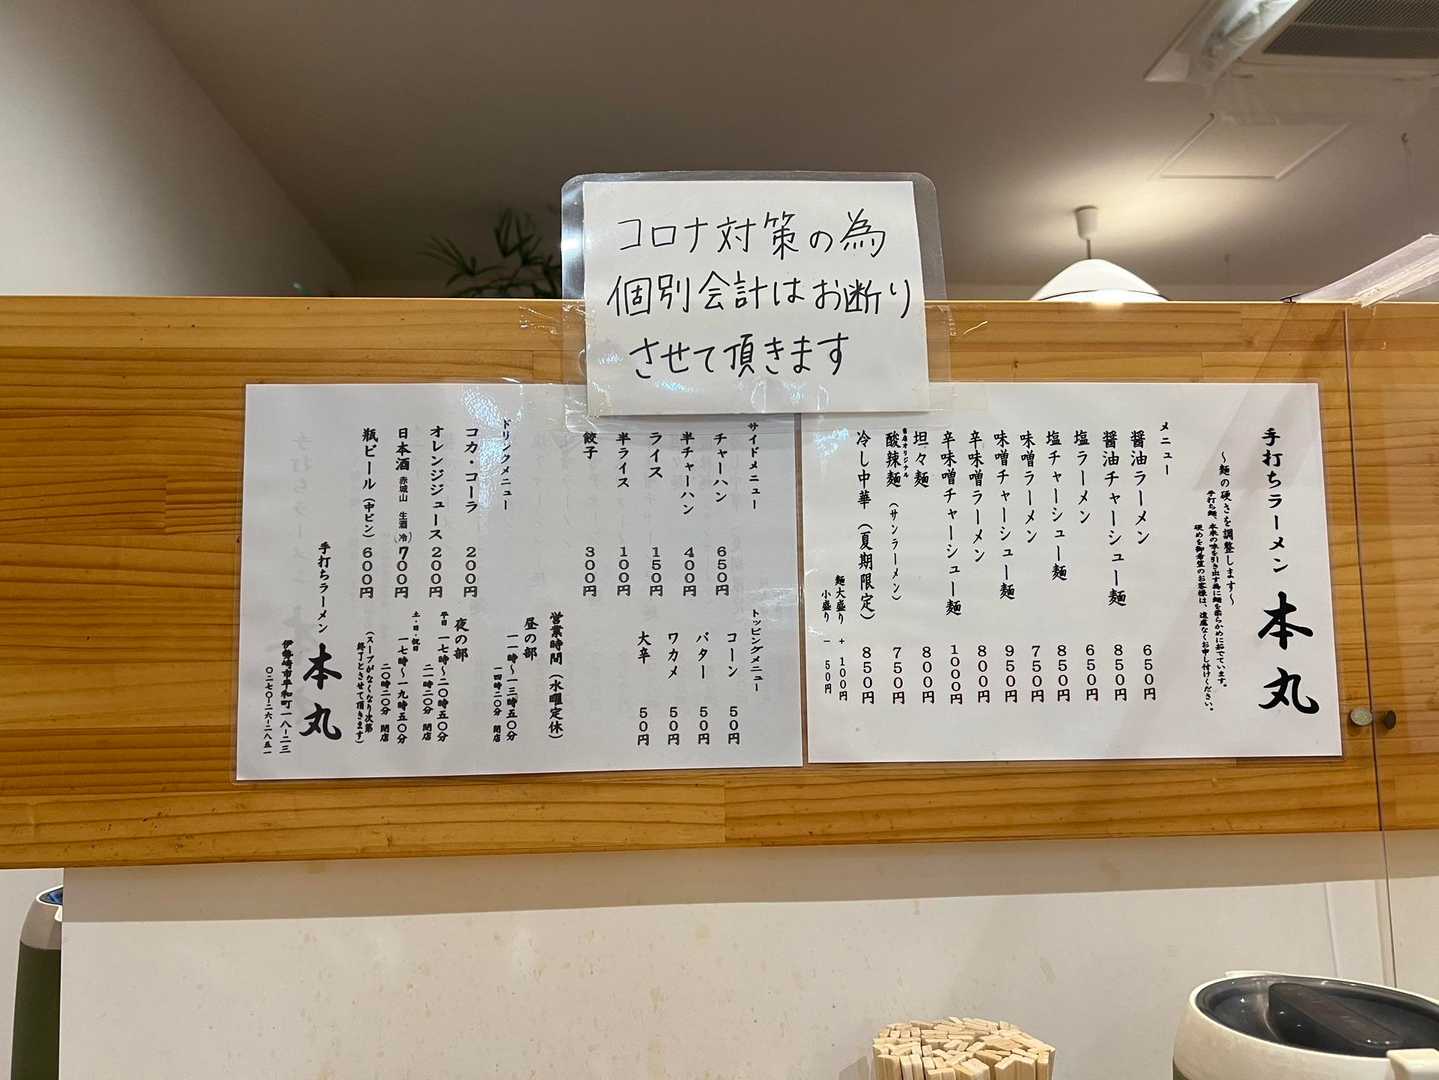 コロナ対策の為
個別会計はお断り
させて頂きます
手打ちラーメン 本丸
～麺の硬さを調整します～
手打ち麺、本来の味を引き出す為に麺を柔らかめに茹でています。
硬めを御希望のお客様は、遠慮なくお申し付けください。
メニュー
醤油ラーメン 650円
醤油チャーシュー麺 850円
塩ラーメン 650円
塩チャーシュー麺 850円
味噌ラーメン 750円
味噌チャーシュー麺 950円
辛味噌ラーメン 800円
辛味噌チャーシュー麺 1000円
坦々麺 800円
当店オリジナル
酸辣麺（サンラーメン） 750円
冷し中華（夏期限定） 850円
麺大盛り ＋100円
小盛り －50円
サイドメニュー
チャーハン 650円
半チャーハン 400円
ライス 150円
半ライス 100円
餃子 300円
トッピングメニュー
コーン 50円
バター 50円
ワカメ 50円
大辛 50円
ドリンクメニュー
コカ・コーラ 200円
オレンジジュース 200円
日本酒 赤城山 生酒（冷） 700円
瓶ビール（中ビン） 600円
営業時間（水曜定休）
昼の部
一一時～一三時五〇分
一四時二〇分 閉店
夜の部
平日 一七時～二〇時五〇分
二一時二〇分 閉店
土・日・祝日 一七時～一九時五〇分
二〇時二〇分 閉店
（スープがなくなり次第
終了とさせて頂きます）
手打ちラーメン 本丸
伊勢崎市平和町一八－二三
〇二七〇－二六－二八五一